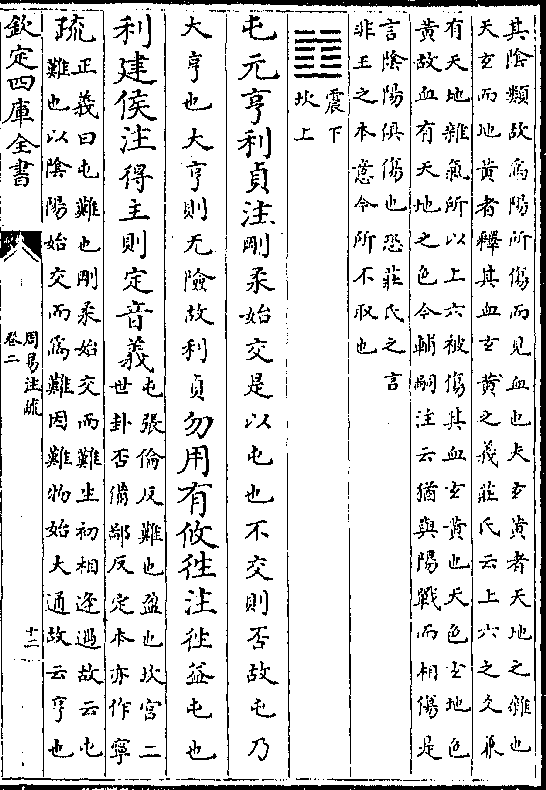 其陰類故為陽所傷而見血也夫玄黃者天地之雜也
天玄而地黃者釋其血玄黃之義莊氏云上六之爻兼
有天地雜氣所以上六被傷其血玄黃也天色玄地色
黃故血有天地之色今輔嗣注云猶與陽戰而相傷是
言陰陽俱傷也恐莊氏之言
非王之本意今所不取也
震下
坎上
屯元亨利貞注剛柔始交是以屯也不交則否故屯乃
大亨也大亨則无險故利貞勿用有攸往注往益屯也
利建侯注得主則定音義屯張倫反難也盈也坎宮二
世卦否備鄙反定本亦作寧
疏正義曰屯難也剛柔始交而難生初相逢遇故云屯
難也以陰陽始交而為難因難物始大通故云亨也
欽定四庫全書
周易注疏
卷二
十二